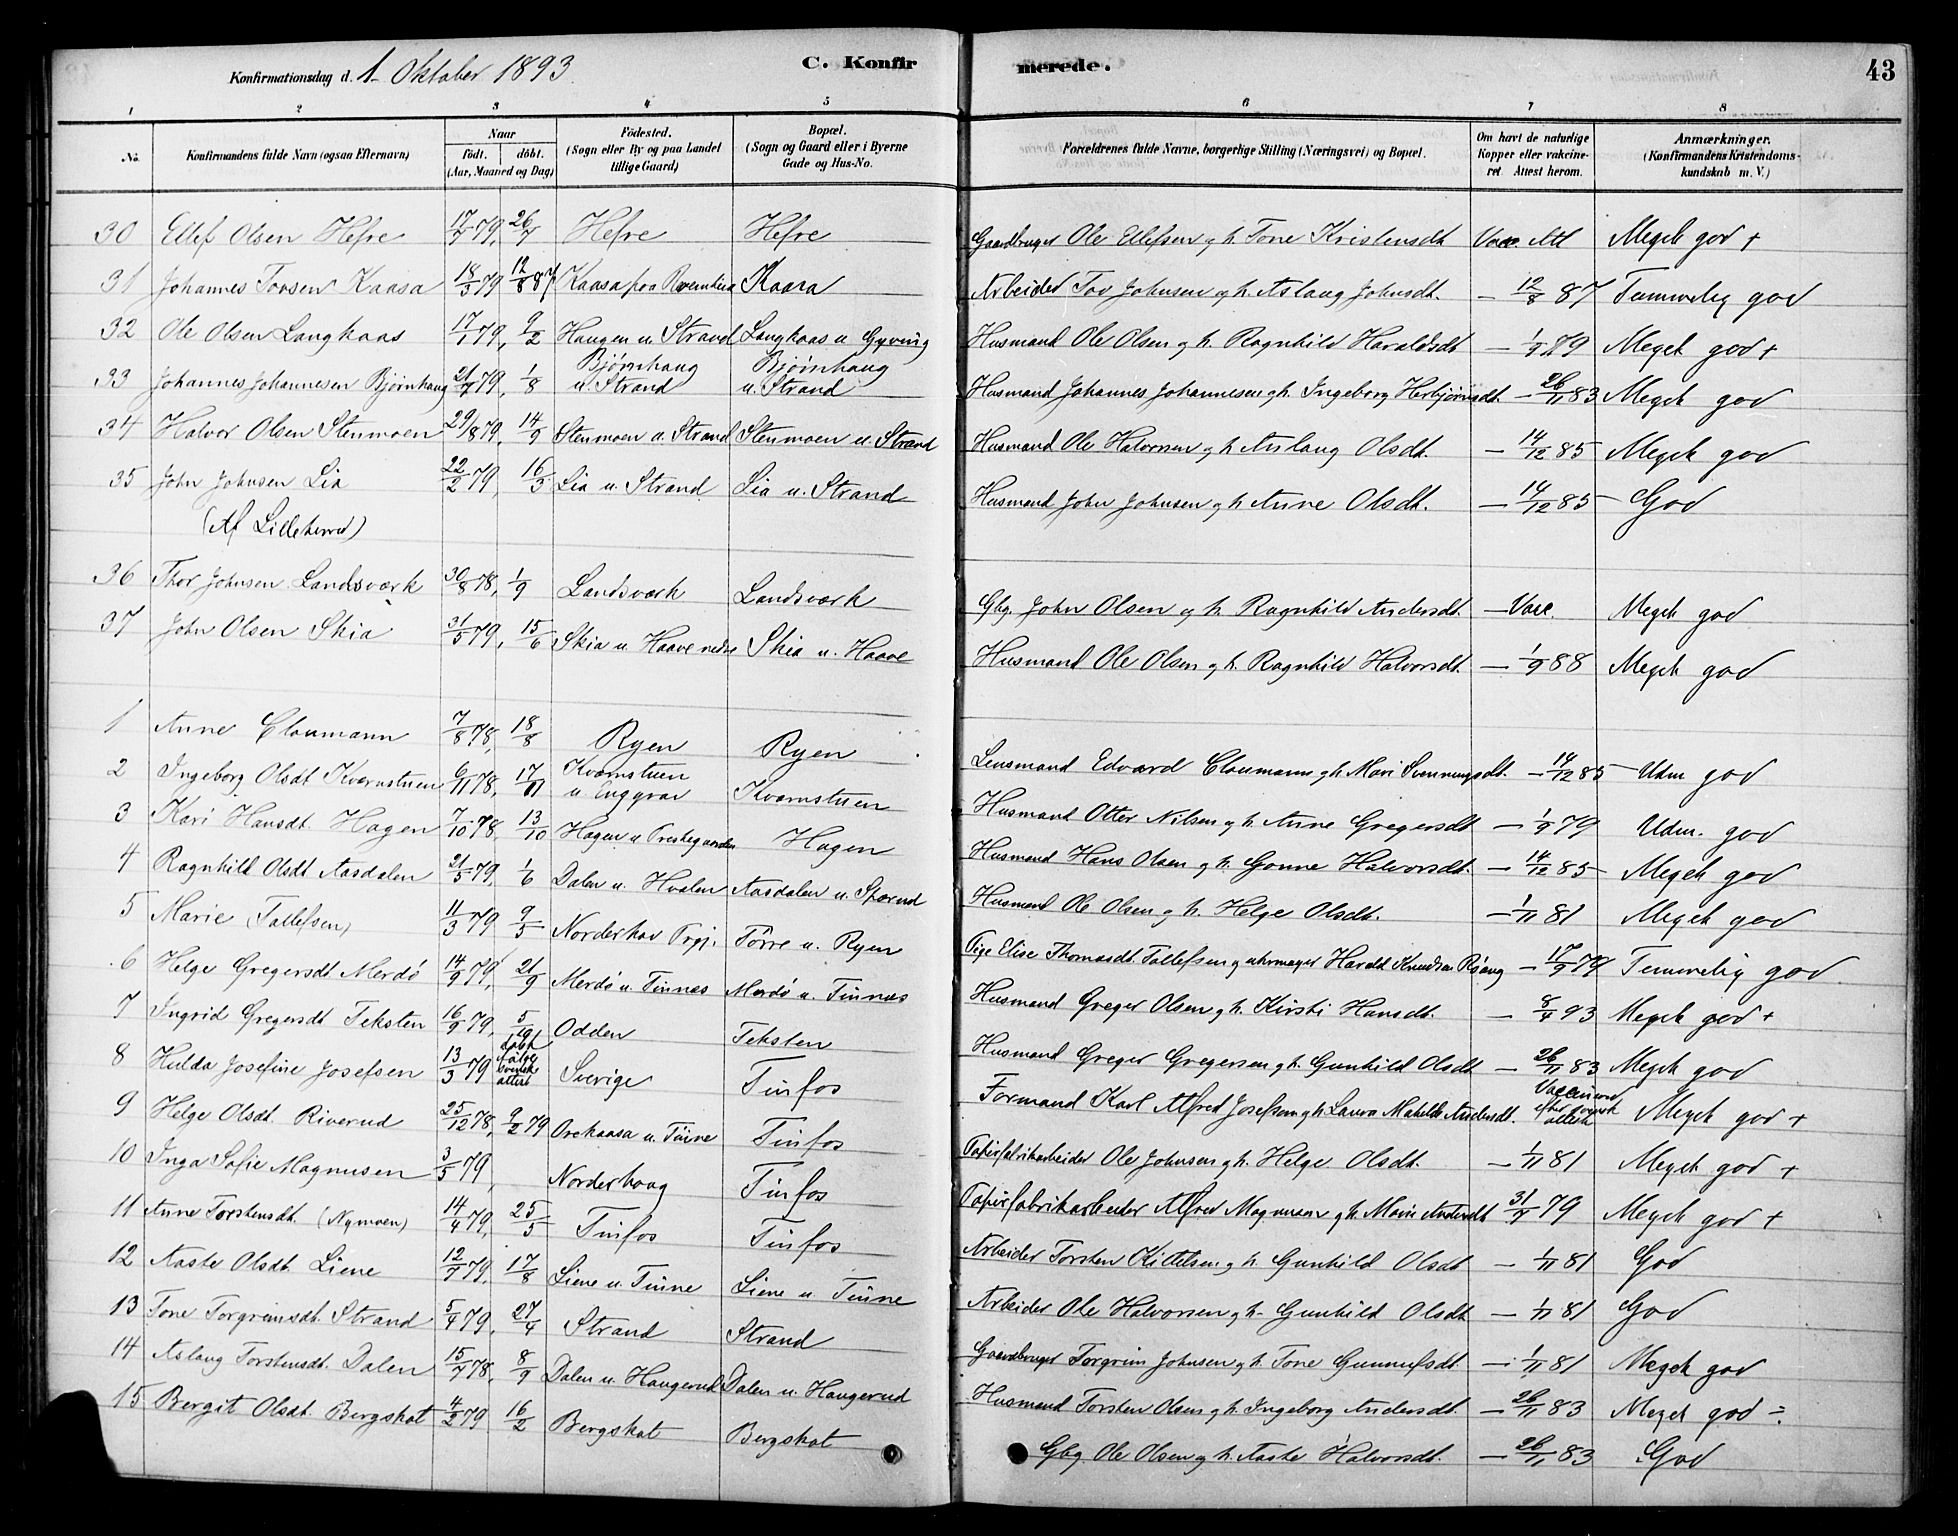 Konfirmationsdag d. 1. Oktober 1893.
C. Konfirmerede.
43
1 2 3 4 5 6 7 8
No. Konfirmandens fulde Navn (ogsaa Efternavn) Naar født. døbt. (Aar, Maaned og Dag) Fødested. (Sogn eller By og paa Landet tillige Gaard) Bopæl. (Sogn og Gaard eller i Byerne Gade og Hus-No. Forældrenes fulde Navne, borgerlige Stilling (Næringsvei) og Bopæl. Om havt de naturlige Kopper eller vakcineret Attest herom. Anmærkninger. (Konfirmandens Kristendomskundskab m. V.)
30 Ellef Olsen Hefre 17/7 79, 26/7 Hefre Hefre Gaardbruger Ole Ellefsen og h. Tone Kristensdt. Vacc. Att Meget god +
31 Johannes Tovsen Kaasa 18/3 79 12/8 87 Kaasa paa Kaasa Arbeider Tov Johnsen og h. Aslaug Johnsdt. — 12/8 87 Temmelig god
32 Ole Olsen Langkaas 17/1 79, 9/2 Haugen u. Strand Langkaas u. Gyving Husmand Ole Olsen og h. Ragnhild Haraldsdt — 1/9 79 Meget god +
33 Johannes Johannesen Bjørnhaug 21/7 79, 1/8 Bjørnhaug u. Strand Bjørnhaug u. Strand Husmand Johannes Johannesen og h. Ingeborg Herbjørnsdt. — 26/11 83 Meget god
34 Halvor Olsen Stenmoen 29/8 79, 14/9 Stenmoen u. Strand Stenmoen u. Strand Husmand Ole Halvorsen og h. Aslaug Olsdt. — 14/12 85 Meget god
35 John Johnsen Lia 22/2 79, 16/3 Lia u. Strand Lia u. Strand Husmand John Johnsen og h. Anne Olsdt. — 14/12 85 — God
(Af Lilleherred)
36 Thor Johnsen Landsværk 30/8 78, 1/9 Landsværk Landsværk Gbg. John Olsen og h. Ragnhild Andersdt. — Vacc. Meget god
37 John Olsen Skia 31/5 79, 15/6 Skia u. Haave nedre Skia u. Haave Husmand Ole Olsen og h. Ragnhild Halvorsdt. — 1/9 88 Meget god
1 Anne Cloumann 7/8 78, 18/8 Ryen Ryen Lensmand Edvard Cloumann og h. Mari Svenningsdt. — 14/12 85 — Udm. god
2 Ingeborg Olsdt. Kværnstuen 6/11 78, 17/11 Kværnstuen u. Enggrav Kværnstuen Husmand Otter Nilsen og h. Anne Gregersdt — 1/9 79 Udm. god
3 Kari Hansdt. Hagen 7/10 78, 13/10 Hagen u. Prestegaarden Hagen Husmand Hans Olsen og h. Gonne Halvorsdt. — 14/12 85 — Meget god
4 Ragnhild Olsdt Aasdalen 21/5 79, 1/6 Dalen u. Hvalen Aasdalen u. Husmand Ole Olsen og h. Helge Olsdt. — 1/11 81 Meget god
5 Marie (Tallefsen) 11/3 79 9/5 Norderhov Tørre u. Ryen Pige Elise Thomasdt. Tallefsen og uhrmager Harald Knudsen — 17/9 79 Temmelig god
6 Helge Gregersdt Merdø 14/9 79, 21/9 Merdø u. Tinnæs Merdø u. Tinnæs Husmand Greger Olsen og h. Kirsti Hansdt. — 8/4 93 Meget god +
7 Ingrid Gregersdt Teksten 16/9 79, 5/10 Odden Teksten Husmand Greger Gregersen og h. Gunhild Olsdt — 26/11 83 Meget god
8 Hulda Josefine Josefsen 13/3 79 døbt ifølge svensk attest Sverige Tinfos Formand Karl Alfred Josefsen og h. Laura Mathilde Andersdt. Vaccinered efter svensk attest Meget god +
9 Helge Olsdt. Riverud 25/12 78, 9/2 79 Orekaasa u. Tinne Tinfos Papirfabrikarbeider Ole Johnsen og h. Helge Olsdt. — 1/11 81 Meget god +
10 Inga Sofie Magnusen 3/5 79, Norderhaag Tinfos Papirfabrikarbeider Alfred Magnusen og h. Marie Andersdt 31/7 79 Meget god +
11 Anne Torstensdt. (Nymoen) 14/4 79, 25/5 Tinfos Tinfos Arbeider Torsten Kittelsen og h. Gunhild Olsdt — 1/11 81 God
12 Aaste Olsdt. Liene 12/7 79, 17/8 Liene u. Tinne Liene u. Tinne Arbeider Ole Halvorsen og h. Gunhild Olsdt — 1/11 81 God
13 Tone Torgrimsdt. Strand 5/4 79, 27/4 Strand Strand Gaardbruger Torgrim Johnsen og h. Tone Gunnufsdt. — 1/11 81 Meget god
14 Aslaug Torstensdt. Dalen 15/7 78, 8/9 Dalen u. Haugerud Dalen u. Haugerud Husmand Torsten Olsen og h. Ingeborg Andersdt. — 26/11 83 Meget god ÷
15 Bergit Olsdt. Bergskot 4/2 79 16/2 Bergskot Bergskot Gbg Ole Olsen og h. Aaste Halvorsdt. — 26/11 83 God